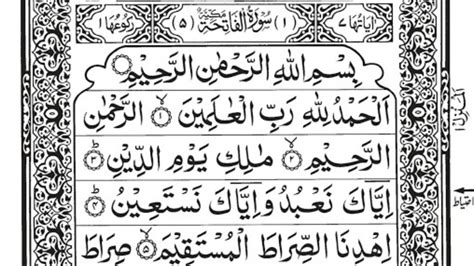 اٰيَاتُهَا ٧ (١) سُوْرَةُ الْفَاتِحَةِ مَكِّيَّةٌ (٥) رُكُوْعُهَا ١
بِسْمِ اللهِ الرَّحْمٰنِ الرَّحِيْمِ
اَلْحَمْدُ لِلّٰهِ رَبِّ الْعٰلَمِيْنَ ۙ١ الرَّحْمٰنِ
الرَّحِيْمِ ۙ٢ مٰلِكِ يَوْمِ الدِّيْنِ ؕ٣
اِيَّاكَ نَعْبُدُ وَاِيَّاكَ نَسْتَعِيْنُ ؕ٤
اِهْدِنَا الصِّرَاطَ الْمُسْتَقِيْمَ ۙ٥ صِرَاطَ
احتياط